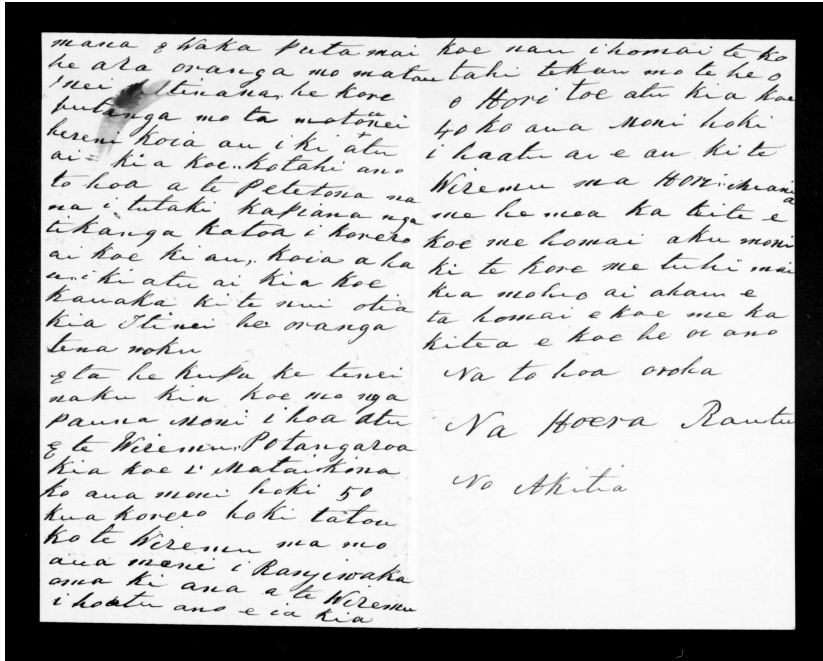 mana e Waka puta mai
he ara oranga mo matau
tinana, he kore
putanga mo ta matou nei
hereni koia au i ki atu
ai kia koe. kotahi ano
to hoa a te Peletona na
na i tutaki kapiana nga
tikanga katoa i korero
ai koe ki au, koia a ha
u i ki atu ai kia koe
kauaka ki te nui otia
kia Itinei he oranga
tena noku
E ta he kupu ke tenei
naku kia koe mo nga
pauna moni i hoa atu
e te Wiremu Potangaroa
kia koe i Mataikona
ko aua moni hoki 50
kua korero hoki tatou
ko te Wiremu ma mo
aua moni i Rangiwaka
oma ki ana a te Wiremu
i hoatu ano e ia kia
koe nau i homai te ko
tahi tekau mo te he o
o Hori toe atu kia koe
40 ko aua moni hoki
i haatu ai e au ki te
Wiremu ma Hori
me he mea ka kite e
koe me homai aku moni
ki te kore me tuhi mai
kia mohio ai ahau e
ta homai e koe me ka
kitea e koe he oi ano
Na to hoa aroha
Na Hoera Rautu
No Akitia